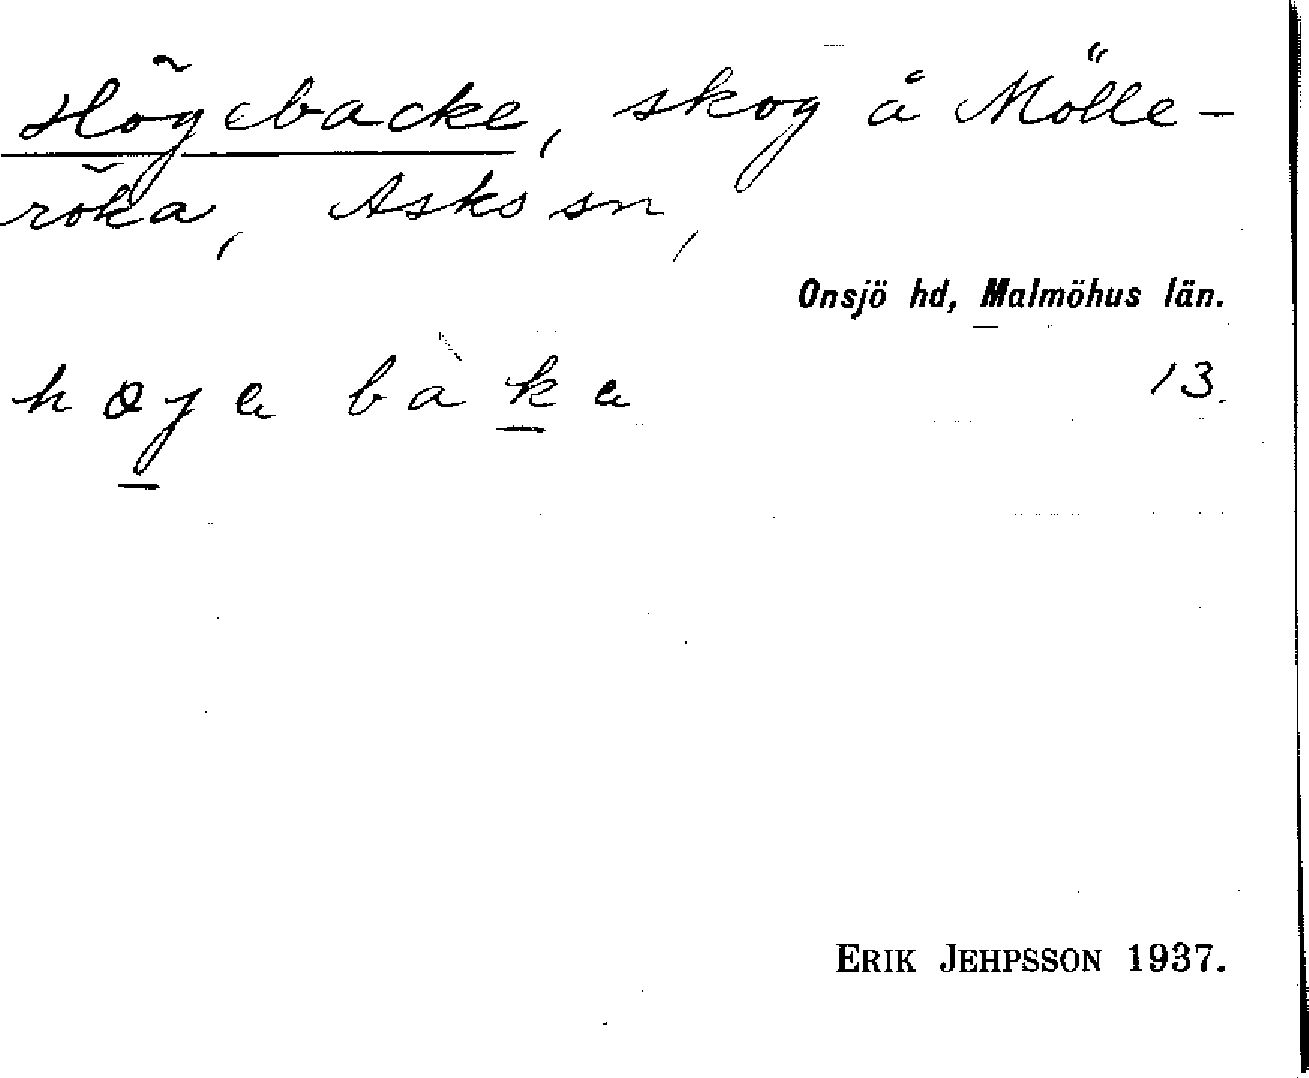 Högebacke, skog å Mölle-
röka, Asks sn,
Onsjö hd, Malmöhus län.
høya bàka 13.
ERIK JEHPSSON 1937.